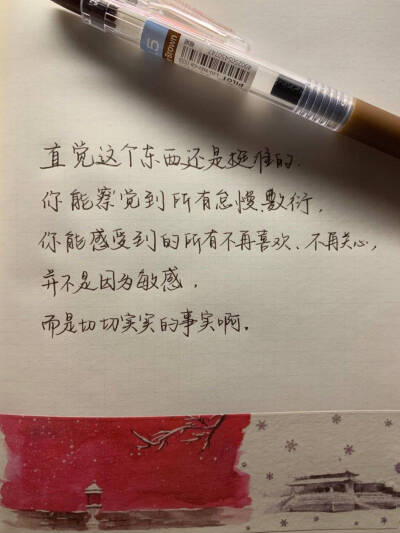 .5
Brown
PILOT
直觉这个东西还是挺准的.
你能察觉到所有怠慢敷衍,
你能感受到的所有不再喜欢、不再关心,
并不是因为敏感,
而是切切实实的事实啊。